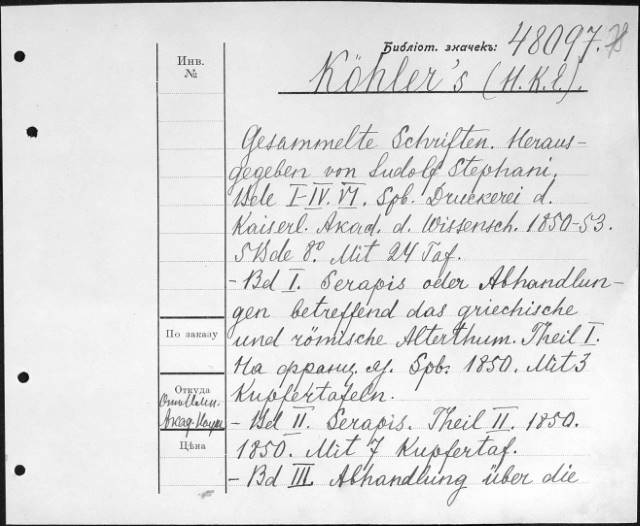 Библiот. значекъ: 48097.
Инв.
№
Köhler's (H.K.E.).
Gesammelte Schriften. Heraus-
gegeben von Ludolf Stephani.
Bde I-IV. VI. Spb. Druckerei d.
Kaiserl. Akad. d. Wissensch. 1850-53.
5 Bde 8º. Mit 24 Taf.
- Bd I. Serapis oder Abhandlun-
gen betreffend das griechische
und römische Alterthum. Theil I.
На франц. яз. Spb. 1850. Mit 3
Kupfertafeln.
- Bd II. Serapis. Theil II. 1850.
1850. Mit 7 Kupfertaf.
- Bd III. Abhandlung über die
По заказу
Откуда
Отъ Имп.
Акад. Наукъ
Цѣна